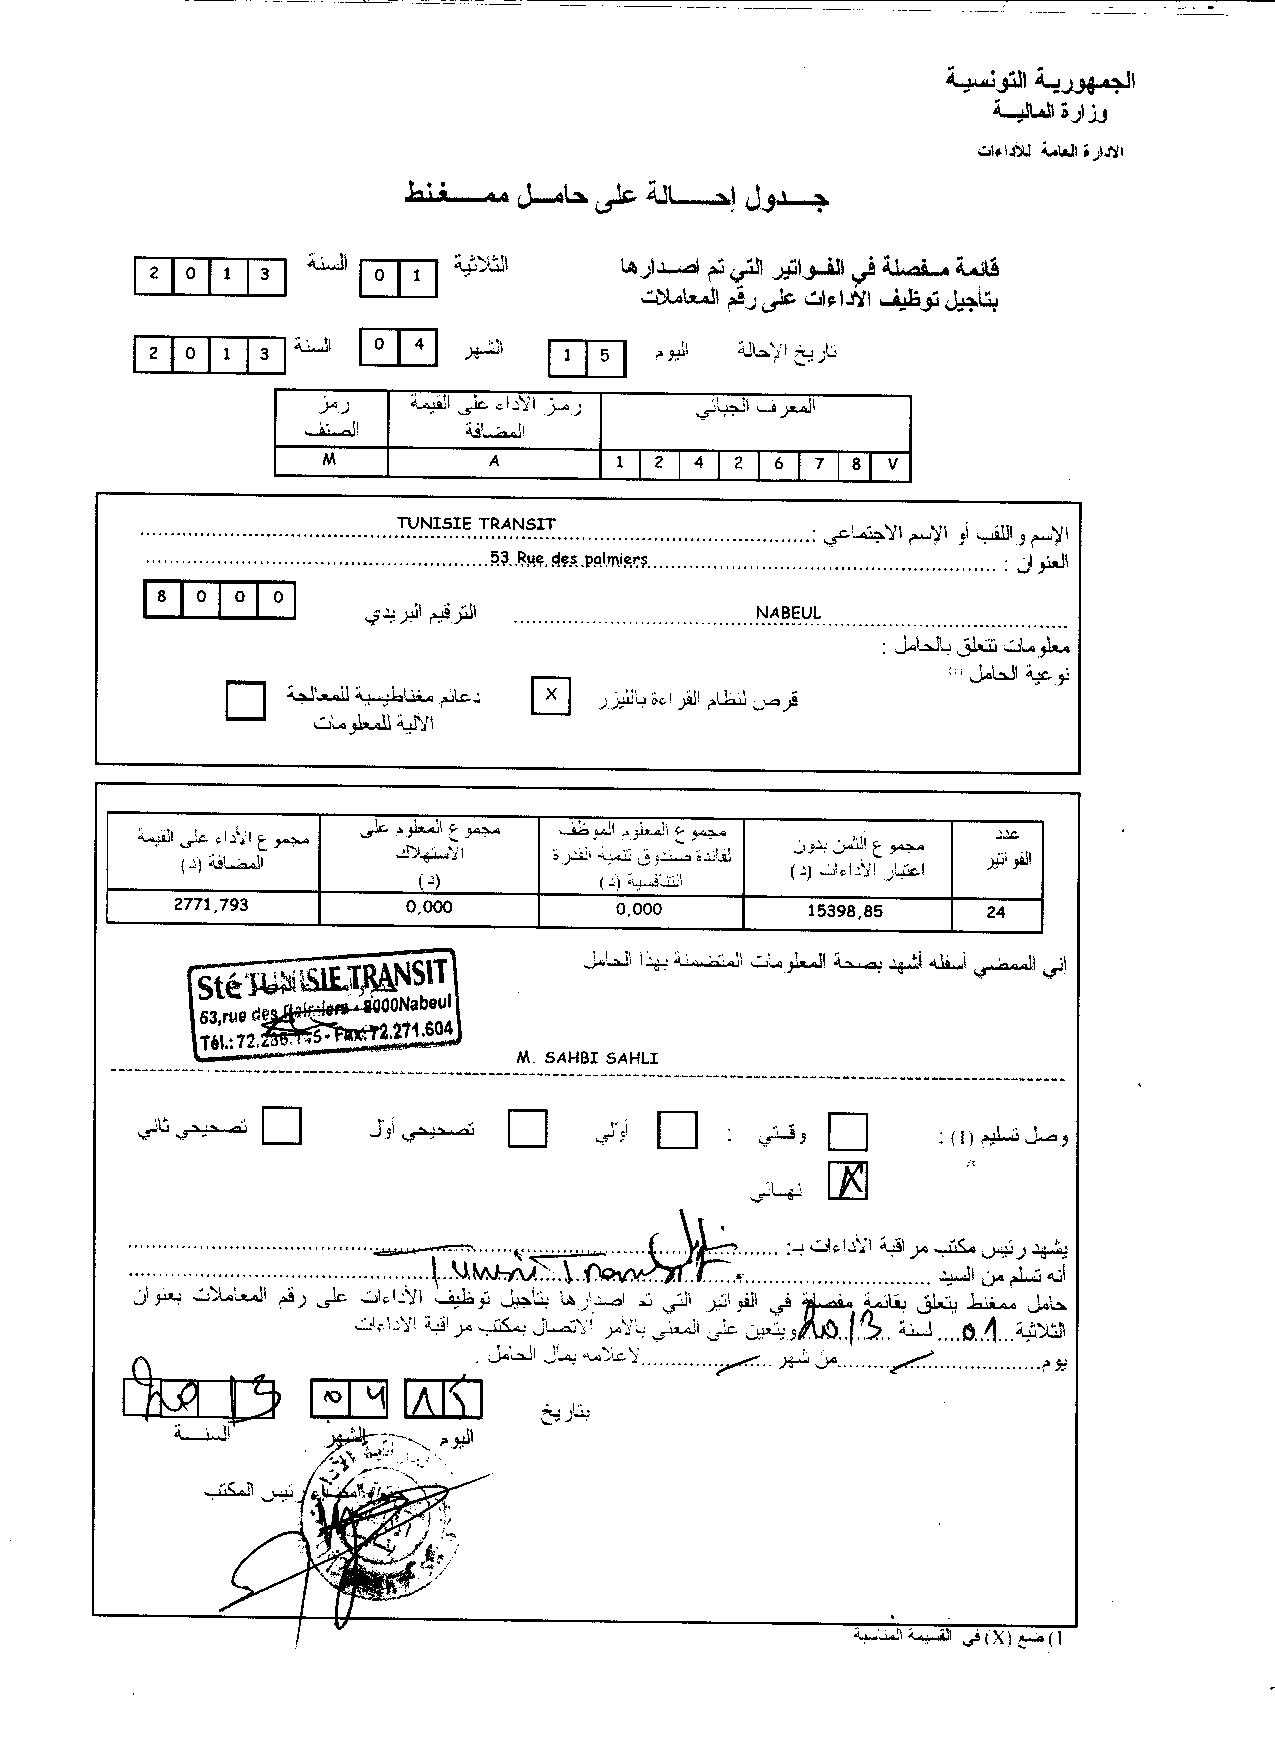 الجمهورية التونسية
وزارة المالية
الادارة العامة للأداءات
جدول إحالة على حامل ممغنط
قائمة مفصلة في الفواتير التي تم اصدارها الثلاثية 0 1 السنة 2 0 1 3
بتأجيل توظيف الأداءات على رقم المعاملات
تاريخ الإحالة اليوم 1 5 الشهر 0 4 السنة 2 0 1 3
المعرف الجبائي رمز الأداء على القيمة المضافة رمز الصنف
1 2 4 2 6 7 8 V A M
الإسم و اللقب أو الإسم الاجتماعي : TUNISIE TRANSIT
العنوان : 53 Rue des palmiers
NABEUL الترقيم البريدي 8 0 0 0
معلومات تتعلق بالحامل :
نوعية الحامل (1)
قرص لنظام القراءة بالليزر X دعائم مغناطيسية للمعالجة
الآلية للمعلومات
عدد الفواتير مجموع الثمن بدون اعتبار الأداءات (د) مجموع المعلوم الموظف لفائدة صندوق تنمية القدرة التنافسية (د) مجموع المعلوم على الاستهلاك (د) مجموع الأداء على القيمة المضافة (د)
24 15398,85 0,000 0,000 2771,793
اني الممضي أسفله أشهد بصحة المعلومات المتضمنة بهذا الحامل
Sté TUNISIE TRANSIT
53,rue des Palmiers - 8000Nabeul
Fax:72.271.604
M. SAHBI SAHLI
وصل تسليم (1) : وقتي : أولي تصحيحي أول تصحيحي ثاني
نهائي X
يشهد رئيس مكتب مراقبة الأداءات بـ:
أنه تسلم من السيد Tunisie Transit
حامل ممغنط يتعلق بقائمة مفصلة في الفواتير التي تم اصدارها بتأجيل توظيف الأداءات على رقم المعاملات بعنوان
الثلاثية 01 لسنة 2013 ويتعين على المعني بالأمر الاتصال بمكتب مراقبة الأداءات
يوم من شهر لاعلامه بمآل الحامل .
بتاريخ 15 04 2013
اليوم الشهر السنة
رئيس المكتب
1) ضع (X) في القسيمة المناسبة